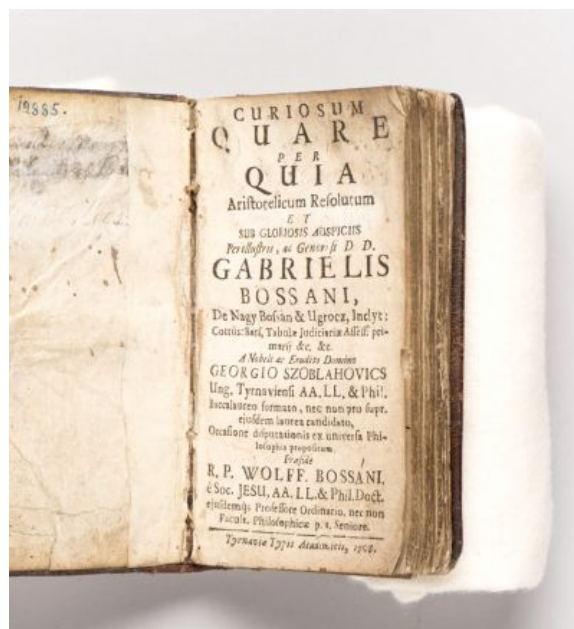 19885.
CURIOSUM
QUARE
PER
QUIA
Aristotelicum Resolutum
ET
SUB GLORIOSIS AUSPICIIS
Perillustris, ac Generosi D D.
GABRIELIS
BOSSANI,
De Nagy Bossán & Ugrocz, Inclyt:
Cottûs: Bars, Tabulæ Judiciariæ Assess: pri-
marij &c. &c.
A Nobili ac Erudito Domino
GEORGIO SZOBLAHOVICS
Ung. Tyrnaviensi AA. LL. & Phil.
Baccalaureo formato, nec non pro supr.
ejusdem laurea candidato,
Occasione disputationis ex universa Phi-
losophia propositum.
Præside
R. P. WOLFF. BOSSANI,
è Soc. JESU, AA. LL. & Phil. Doct.
ejusdemq; Professore Ordinario, nec non
Facult. Philosophicæ p. t. Seniore.
Tyrnaviæ Typis Academicis, 1708.